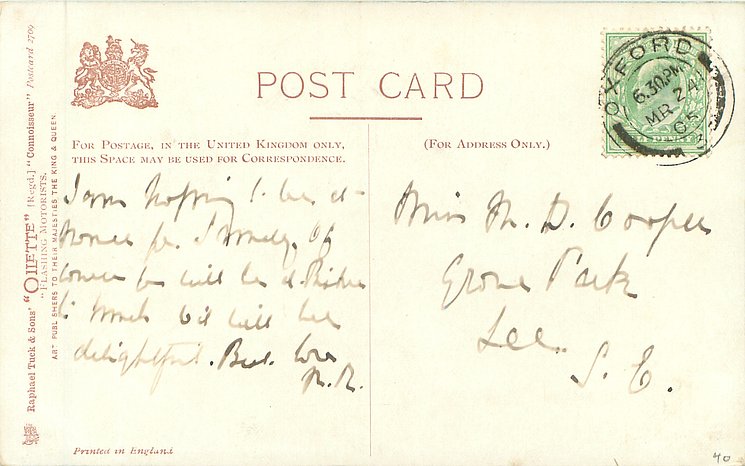 POST CARD
FOR POSTAGE, IN THE UNITED KINGDOM ONLY,
THIS SPACE MAY BE USED FOR CORRESPONDENCE.
(FOR ADDRESS ONLY.)
OXFORD
6.30PM
MR 24
05
I am hoping to be at
home for Sunday. Of
course
will be
to
will be
delightful. Best love
Miss M. D. Cooper
Grove Park
Lee.
S. E.
Raphael Tuck & Sons' "OILETTE" [Regd.] "Connoisseur" Postcard 2709
"FLASHING MOTORISTS.
ART PUBLISHERS TO THEIR MAJESTIES THE KING & QUEEN.
Printed in England
40